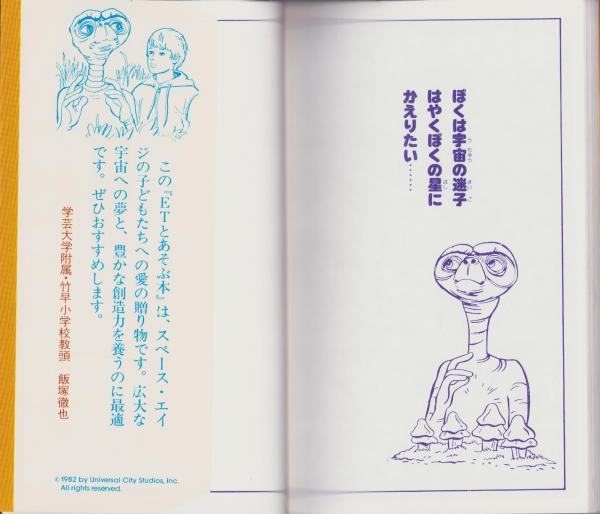 ぼくは宇宙の迷子
はやくぼくの星に
かえりたい……
この『ETとあそぶ本』は、スペース・エイ
ジの子どもたちへの愛の贈り物です。広大な
宇宙への夢と、豊かな創造力を養うのに最適
です。ぜひおすすめします。
学芸大学附属・竹早小学校教頭 飯塚徹也
©1982 by Universal City Studios, Inc.
All rights reserved.